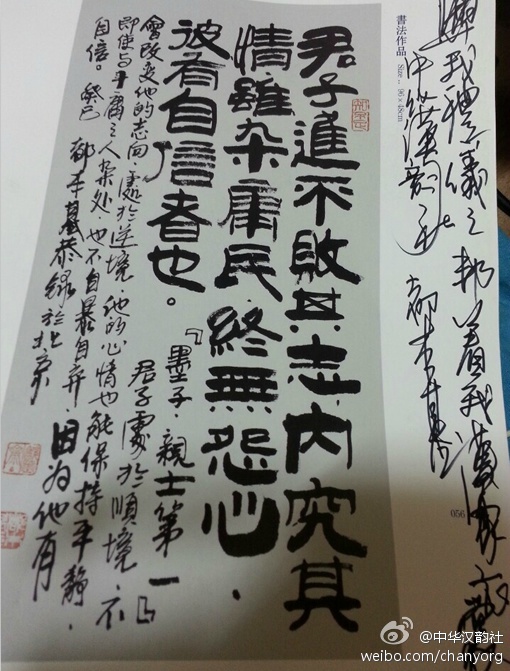 我禮儀之邦着我漢家衣裳
中华漢韵社
都本基
書法作品 Size: 96×48cm
君子進不敗其志内究其
情雖杂庸民，終無怨心，
彼有自信者也。
『墨子·親士第一』
君子處於順境，不
會改变他的志向，處於逆境，他的心情也能保持平静，
即使与平庸之人杂处，也不自暴自弃，因为他有
自信。癸巳 都本基恭録於北京
056
@中华汉韵社
weibo.com/chanyorg